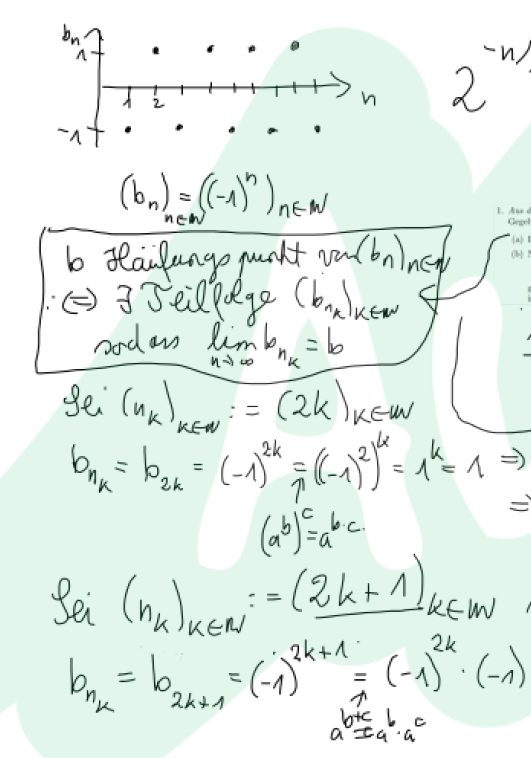 b_n
1
1 2 n
-1
2^{-n}
(b_n)_{n∈ℕ} = ((-1)^n)_{n∈ℕ}
1. Aus d
Gegeb
(a)
(b)
b Häufungspunkt von (b_n)_{n∈ℕ}
:⇔ ∃ Teilfolge (b_{n_k})_{k∈ℕ}
sodass lim_{n→∞} b_{n_k} = b
Sei (n_k)_{k∈ℕ} := (2k)_{k∈ℕ}
b_{n_k} = b_{2k} = (-1)^{2k} = ((-1)^2)^k = 1^k = 1 ⇒
⇒
(a^b)^c = a^{b·c}
Sei (n_k)_{k∈ℕ} := (2k+1)_{k∈ℕ}
b_{n_k} = b_{2k+1} = (-1)^{2k+1} = (-1)^{2k} · (-1)
a^{b+c} = a^b · a^c